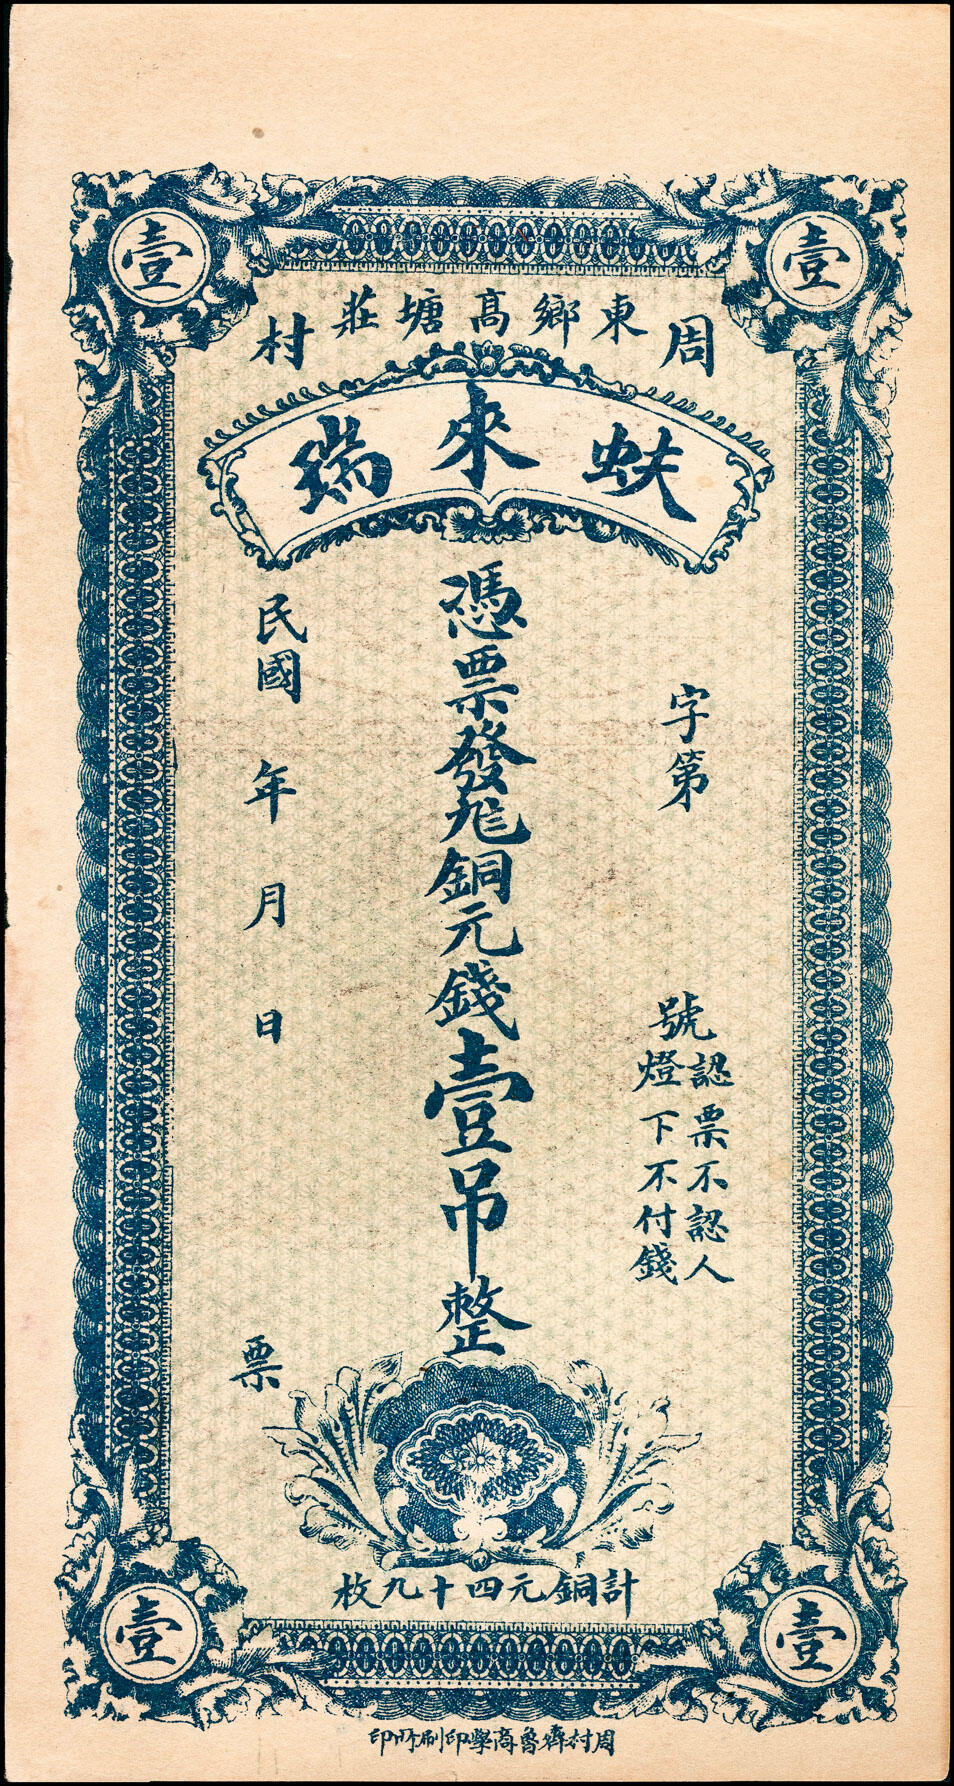 壹
壹
周村
東鄉高塘莊
蚨來瑞
字第　號
認票不認人
燈下不付錢
憑票發九八銅元錢壹吊整
民國　年　月　日　票
計銅元四十九枚
壹
壹
周村齊魯商學印刷所印